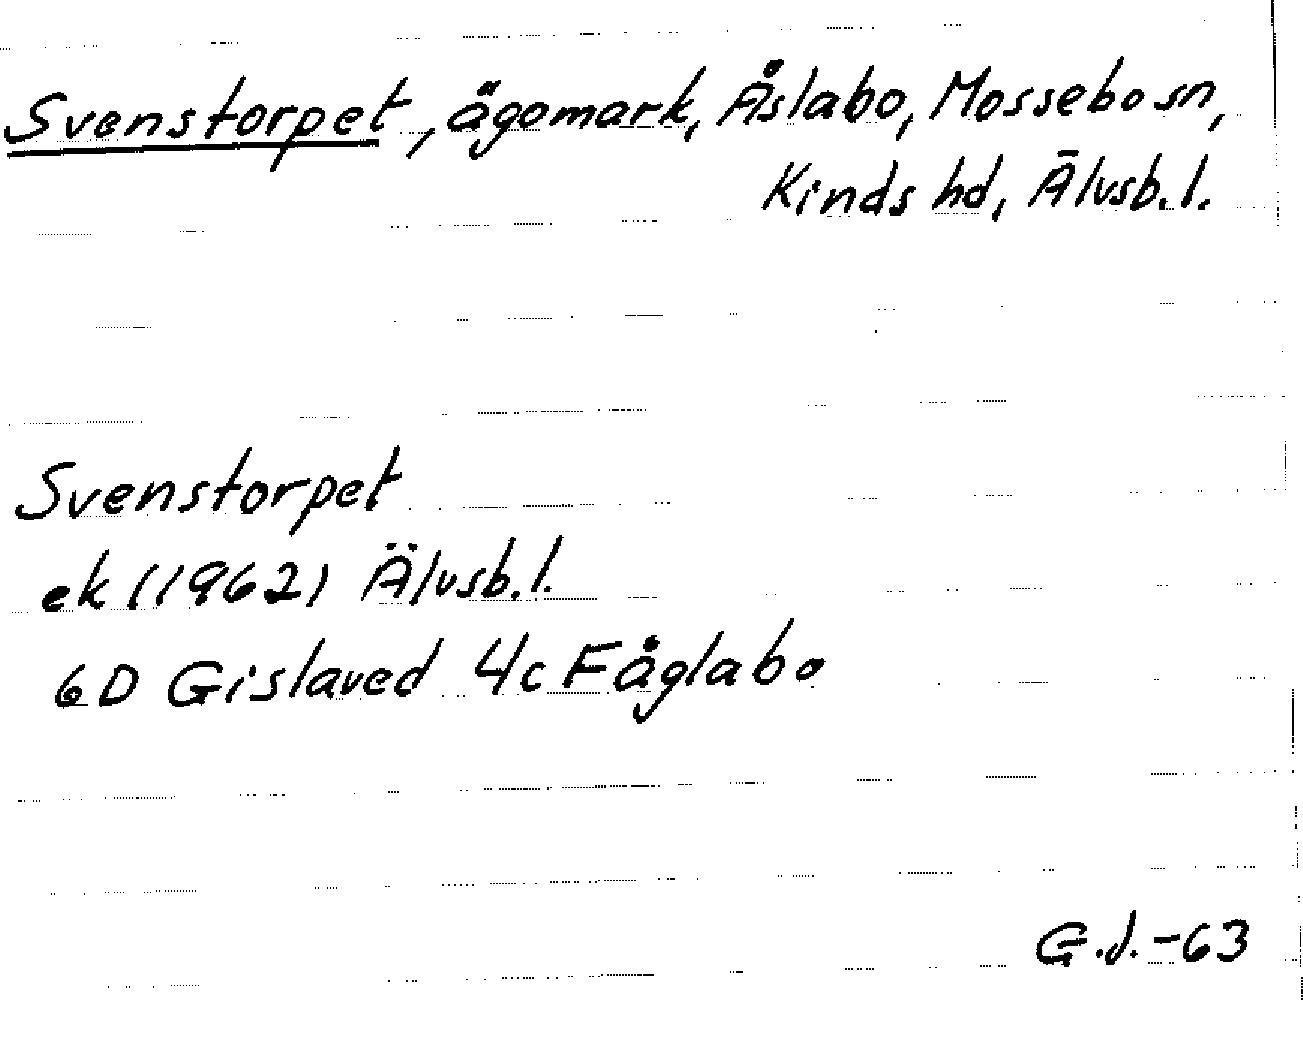 Svenstorpet, ägomark, Åslabo, Mossebo sn,
Kinds hd, Älvsb. l.
Svenstorpet
ek (1962) Älvsb. l.
6D Gislaved 4c Fåglabo
G.J.-63